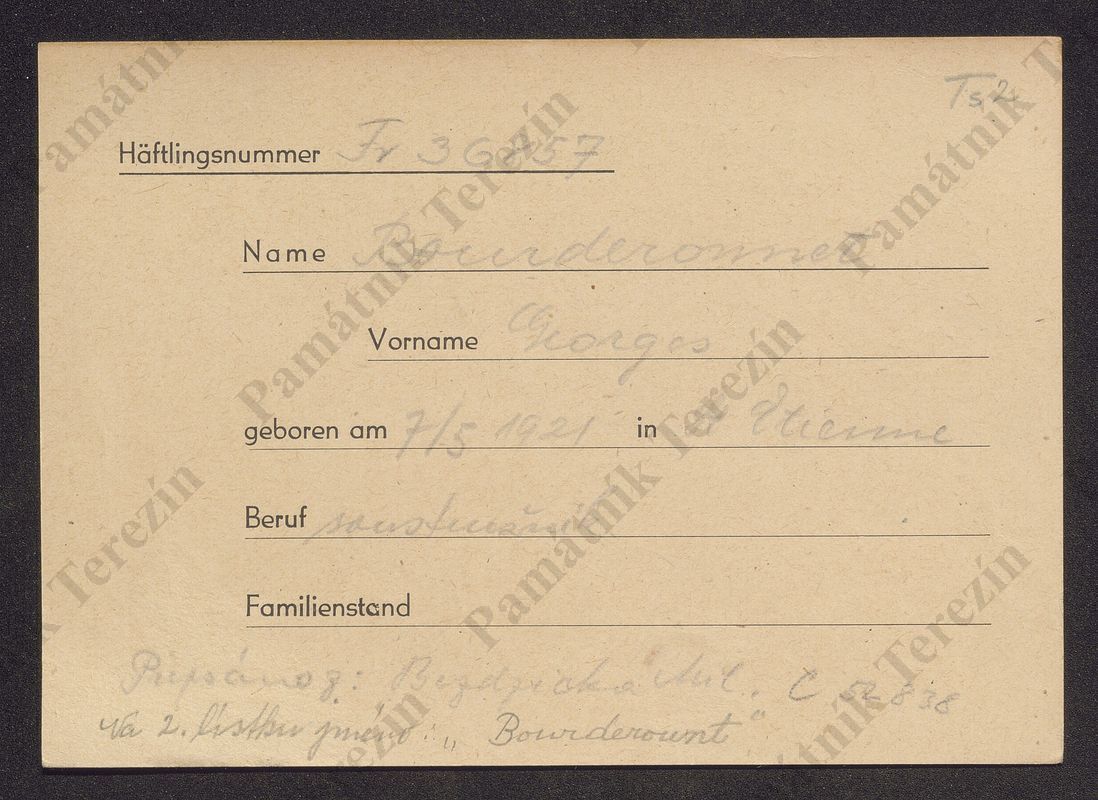 Ts 2
Häftlingsnummer Fr 36757
Name Bourderonnet
Vorname Georges
geboren am 7/5 1921 in St Etienne
Beruf soustružník
Familienstand
Připsáno z: Mil. C 52838
Na 2. lístku jméno: „Bourderount"
Památník Terezín